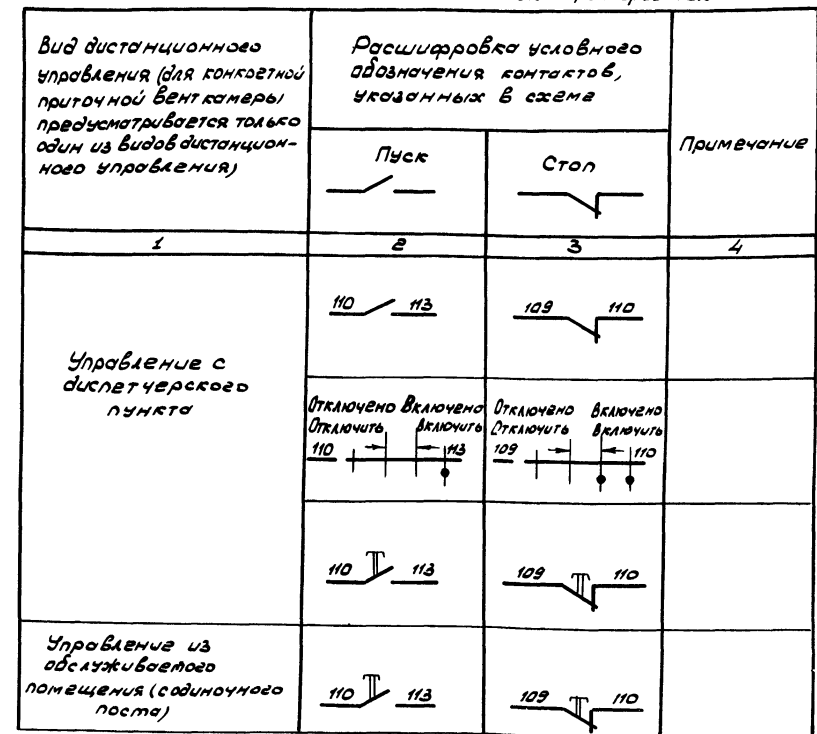 Вид дистанционного
управления (для конкретной
приточной венткамеры
предусматривается только
один из видов дистанцион-
ного управления)
Расшифровка условного
обозначения контактов,
указанных в схеме
Пуск
Стоп
Примечание
1
2
3
4
Управление с
диспетчерского
пункта
110 113
109 110
Отключено Включено
Отключить Включить
110 113
Отключено Включено
Отключить Включить
109 110
110 113
109 110
Управление из
обслуживаемого
помещения (с одиночного
поста)
110 113
109 110